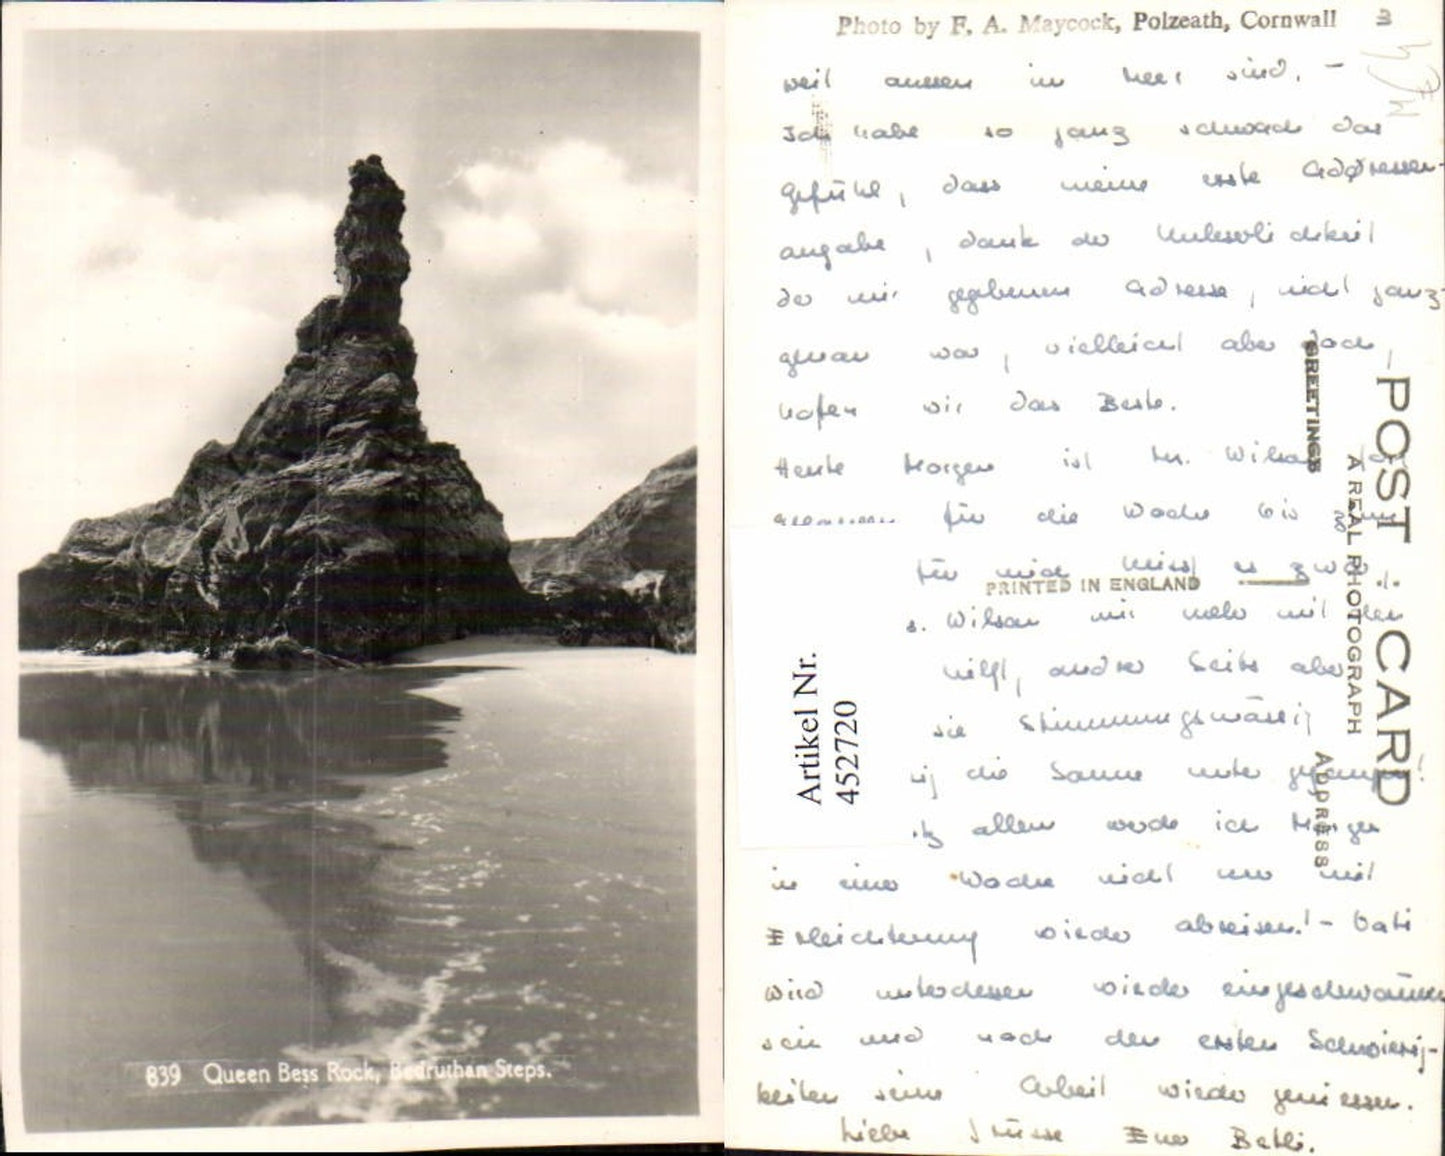 839 Queen Bess Rock, Bedruthan Steps.
Photo by F. A. Maycock, Polzeath, Cornwall
3
weil aussen im Meer sind. -
Ich habe so ganz schwach das
Gefühl, dass meine erste Addressen-
angabe, dank der Unleserlichkeit
der mir gegebenen Adresse, nicht ganz
genau war, vielleicht aber doch,
hofen wir das Beste.
Heute Morgen ist Mr. Wilson
für die Woche bis
für mich
s. Wilson mir mehr mit den
hilft, andrer Seits aber
sie Stimmungsmässig
die Sonne unter
allem werde ich Morgen
in einer Woche nicht nur mit
Erleichterung wieder abreisen! - Vati
wird unterdessen wieder eingeschwommen
sein und nach den ersten Schwierig-
keiten seine Arbeit wieder geniessen.
Liebe Grüsse Euer Bethli.
POST CARD
A REAL PHOTOGRAPH
GREETINGS
ADDRESS
PRINTED IN ENGLAND
Artikel Nr.
452720